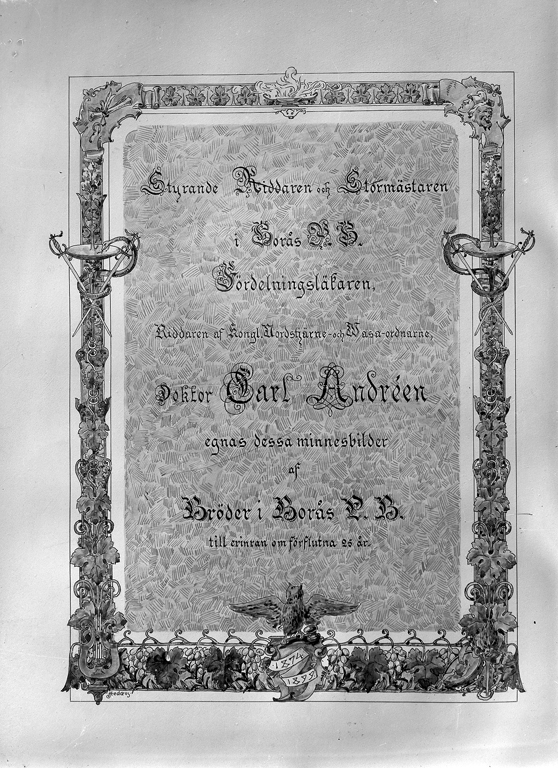 Styrande Riddaren och Stormästaren
i Borås P. B.
Fördelningsläkaren,
Riddaren af Kongl. Nordstjärne- och Wasa-ordnarne,
Doktor Carl Andréen
egnas dessa minnesbilder
af
Bröder i Borås P. B.
till erinran om förflutna 25 år.
1874
1899